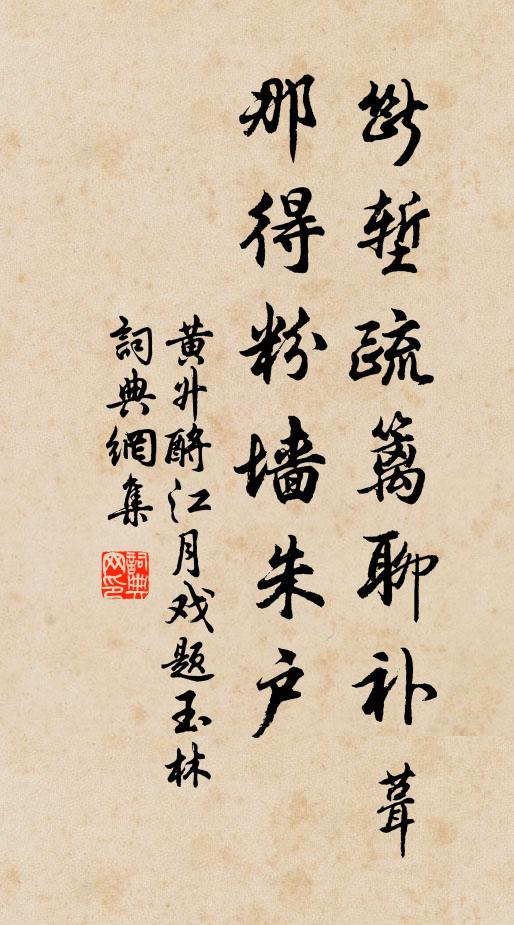 断塹疏篱聊补葺
那得粉墙朱户
黄升酹江月戏题玉林
詞典網集
詞典网印